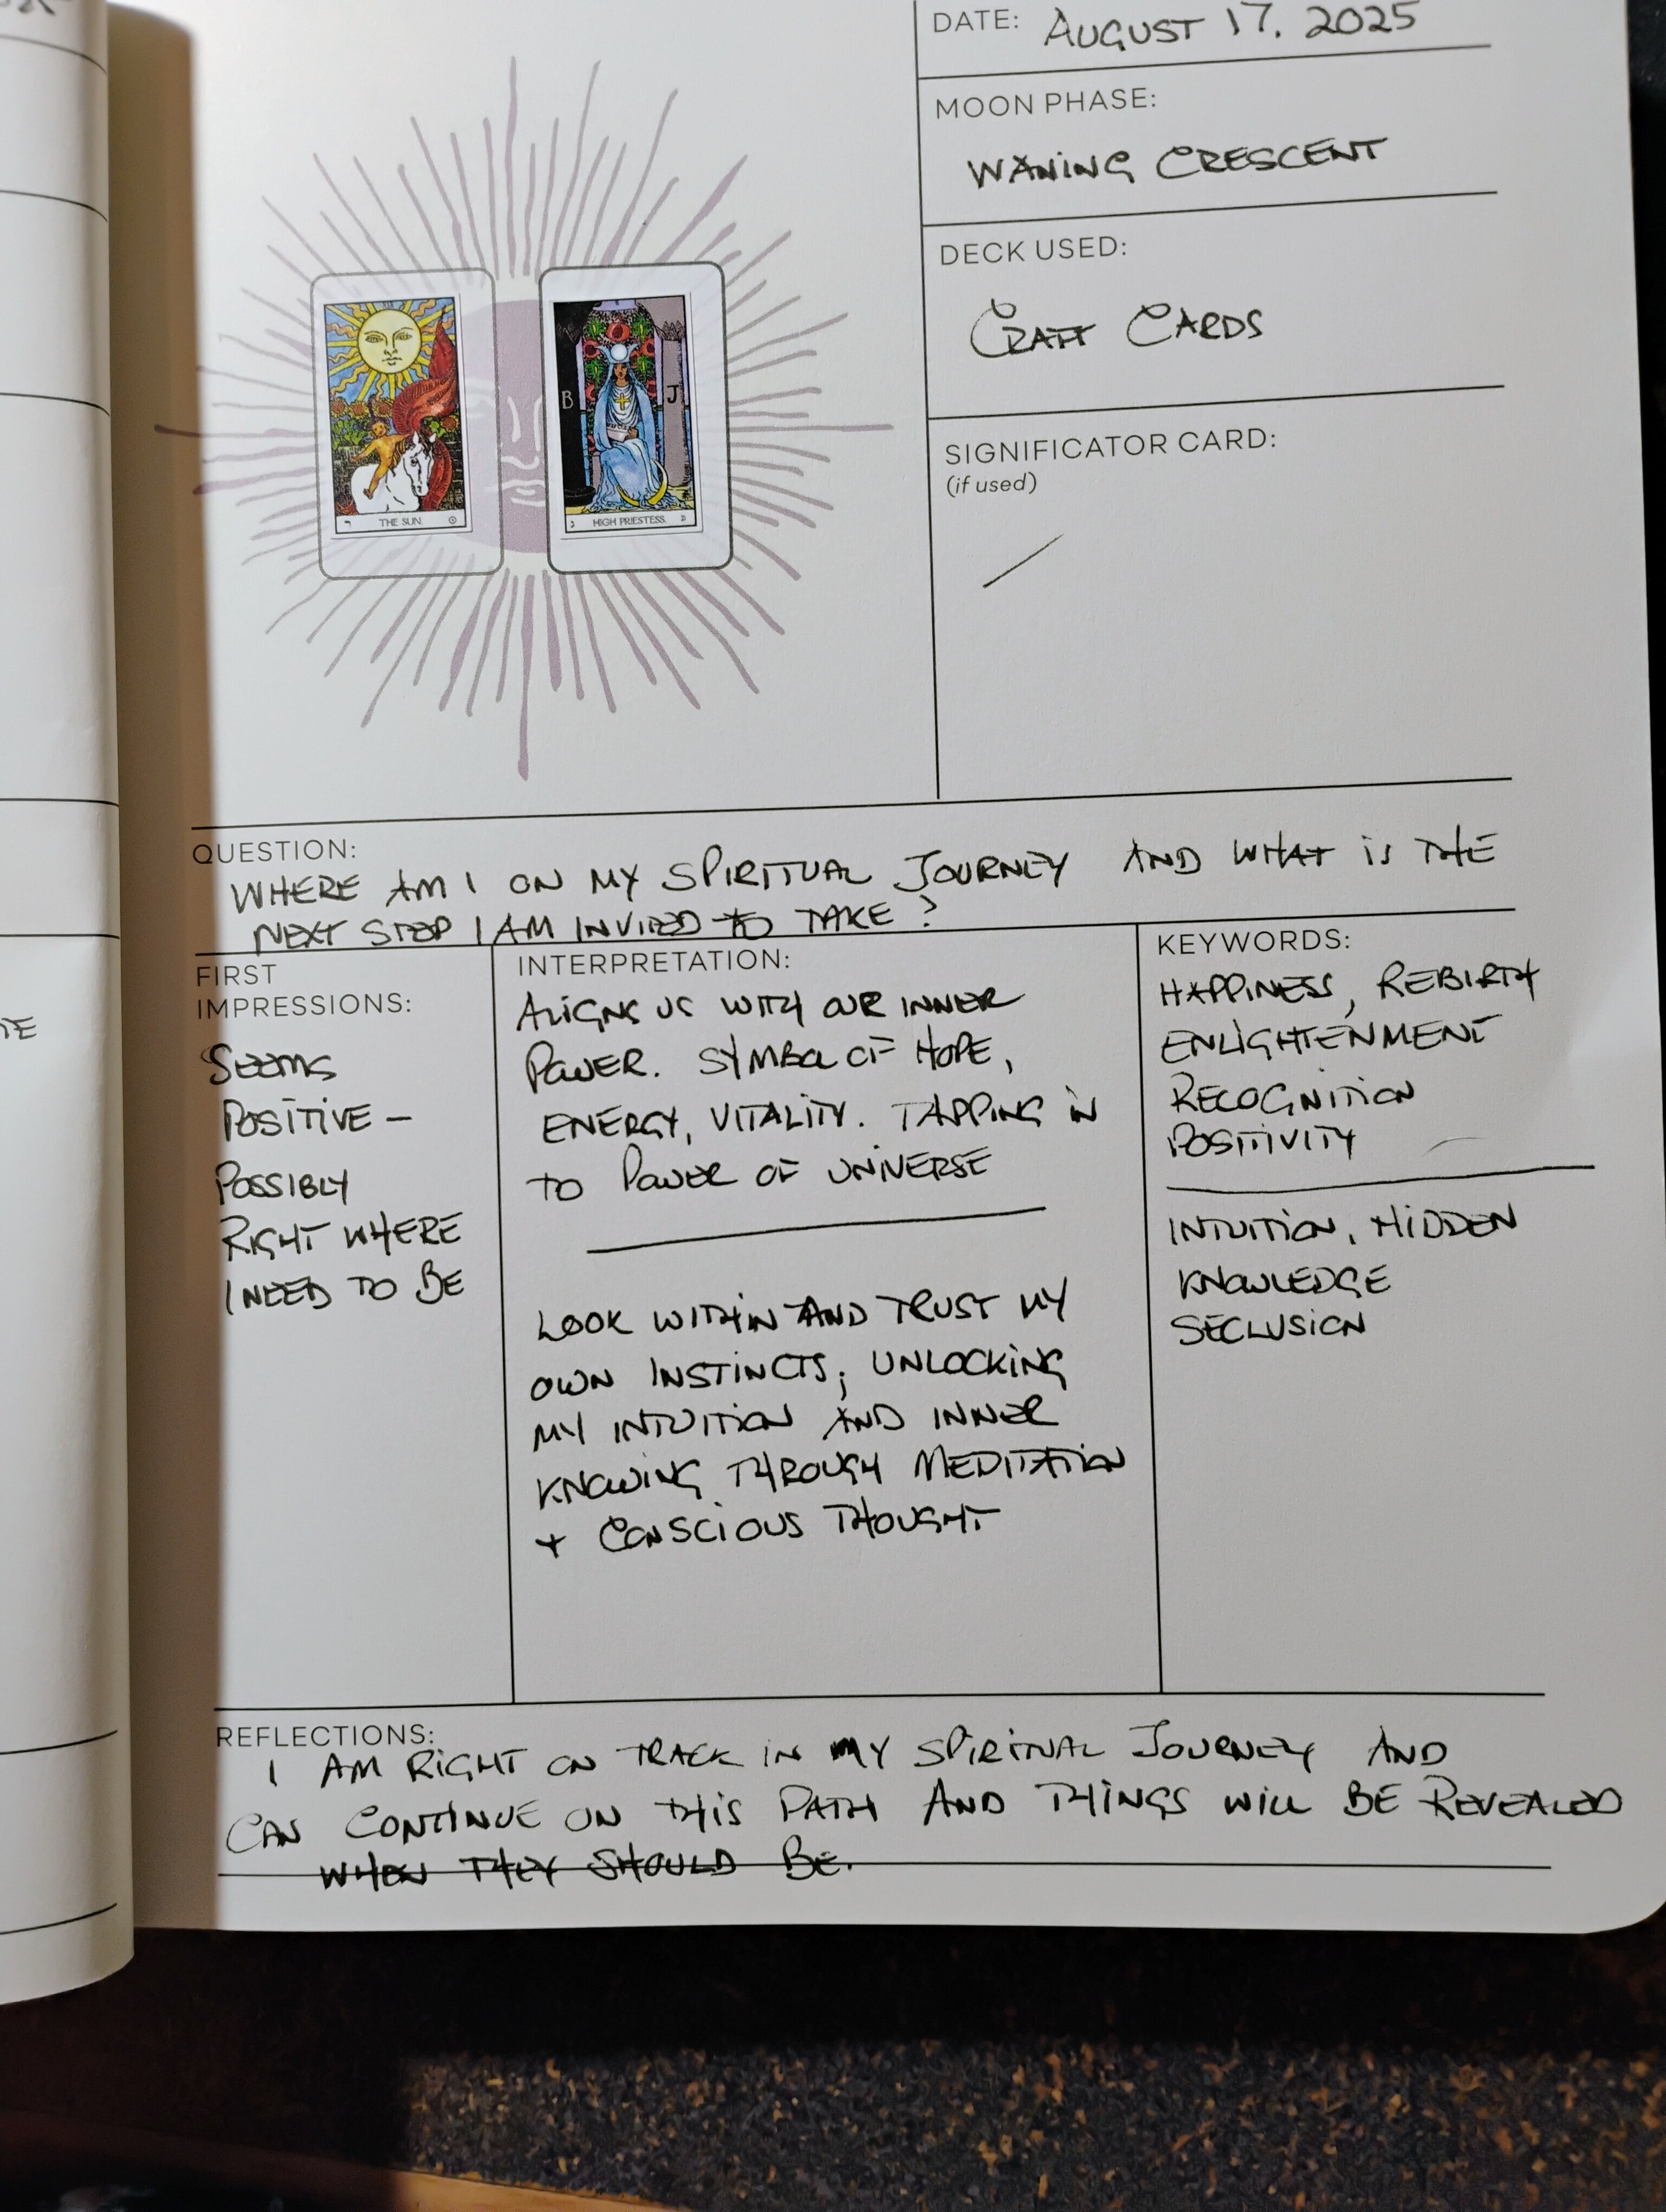 DATE: AUGUST 17, 2025
MOON PHASE:
WANING CRESCENT
DECK USED:
CRAFT CARDS
SIGNIFICATOR CARD:
(if used)
B J
THE SUN.
HIGH PRIESTESS.
QUESTION:
WHERE AM I ON MY SPIRITUAL JOURNEY AND WHAT IS THE
NEXT STEP I AM INVITED TO TAKE?
FIRST
IMPRESSIONS:
SEEMS
POSITIVE –
POSSIBLY
RIGHT WHERE
I NEED TO BE
INTERPRETATION:
ALIGNS US WITH OUR INNER
POWER. SYMBOL OF HOPE,
ENERGY, VITALITY. TAPPING IN
TO POWER OF UNIVERSE
LOOK WITHIN AND TRUST MY
OWN INSTINCTS; UNLOCKING
MY INTUITION AND INNER
KNOWING THROUGH MEDITATION
+ CONSCIOUS THOUGHT
KEYWORDS:
HAPPINESS, REBIRTH
ENLIGHTENMENT
RECOGNITION
POSITIVITY
INTUITION, HIDDEN
KNOWLEDGE
SECLUSION
REFLECTIONS:
I AM RIGHT ON TRACK IN MY SPIRITUAL JOURNEY AND
CAN CONTINUE ON THIS PATH AND THINGS WILL BE REVEALED
WHEN THEY SHOULD BE.